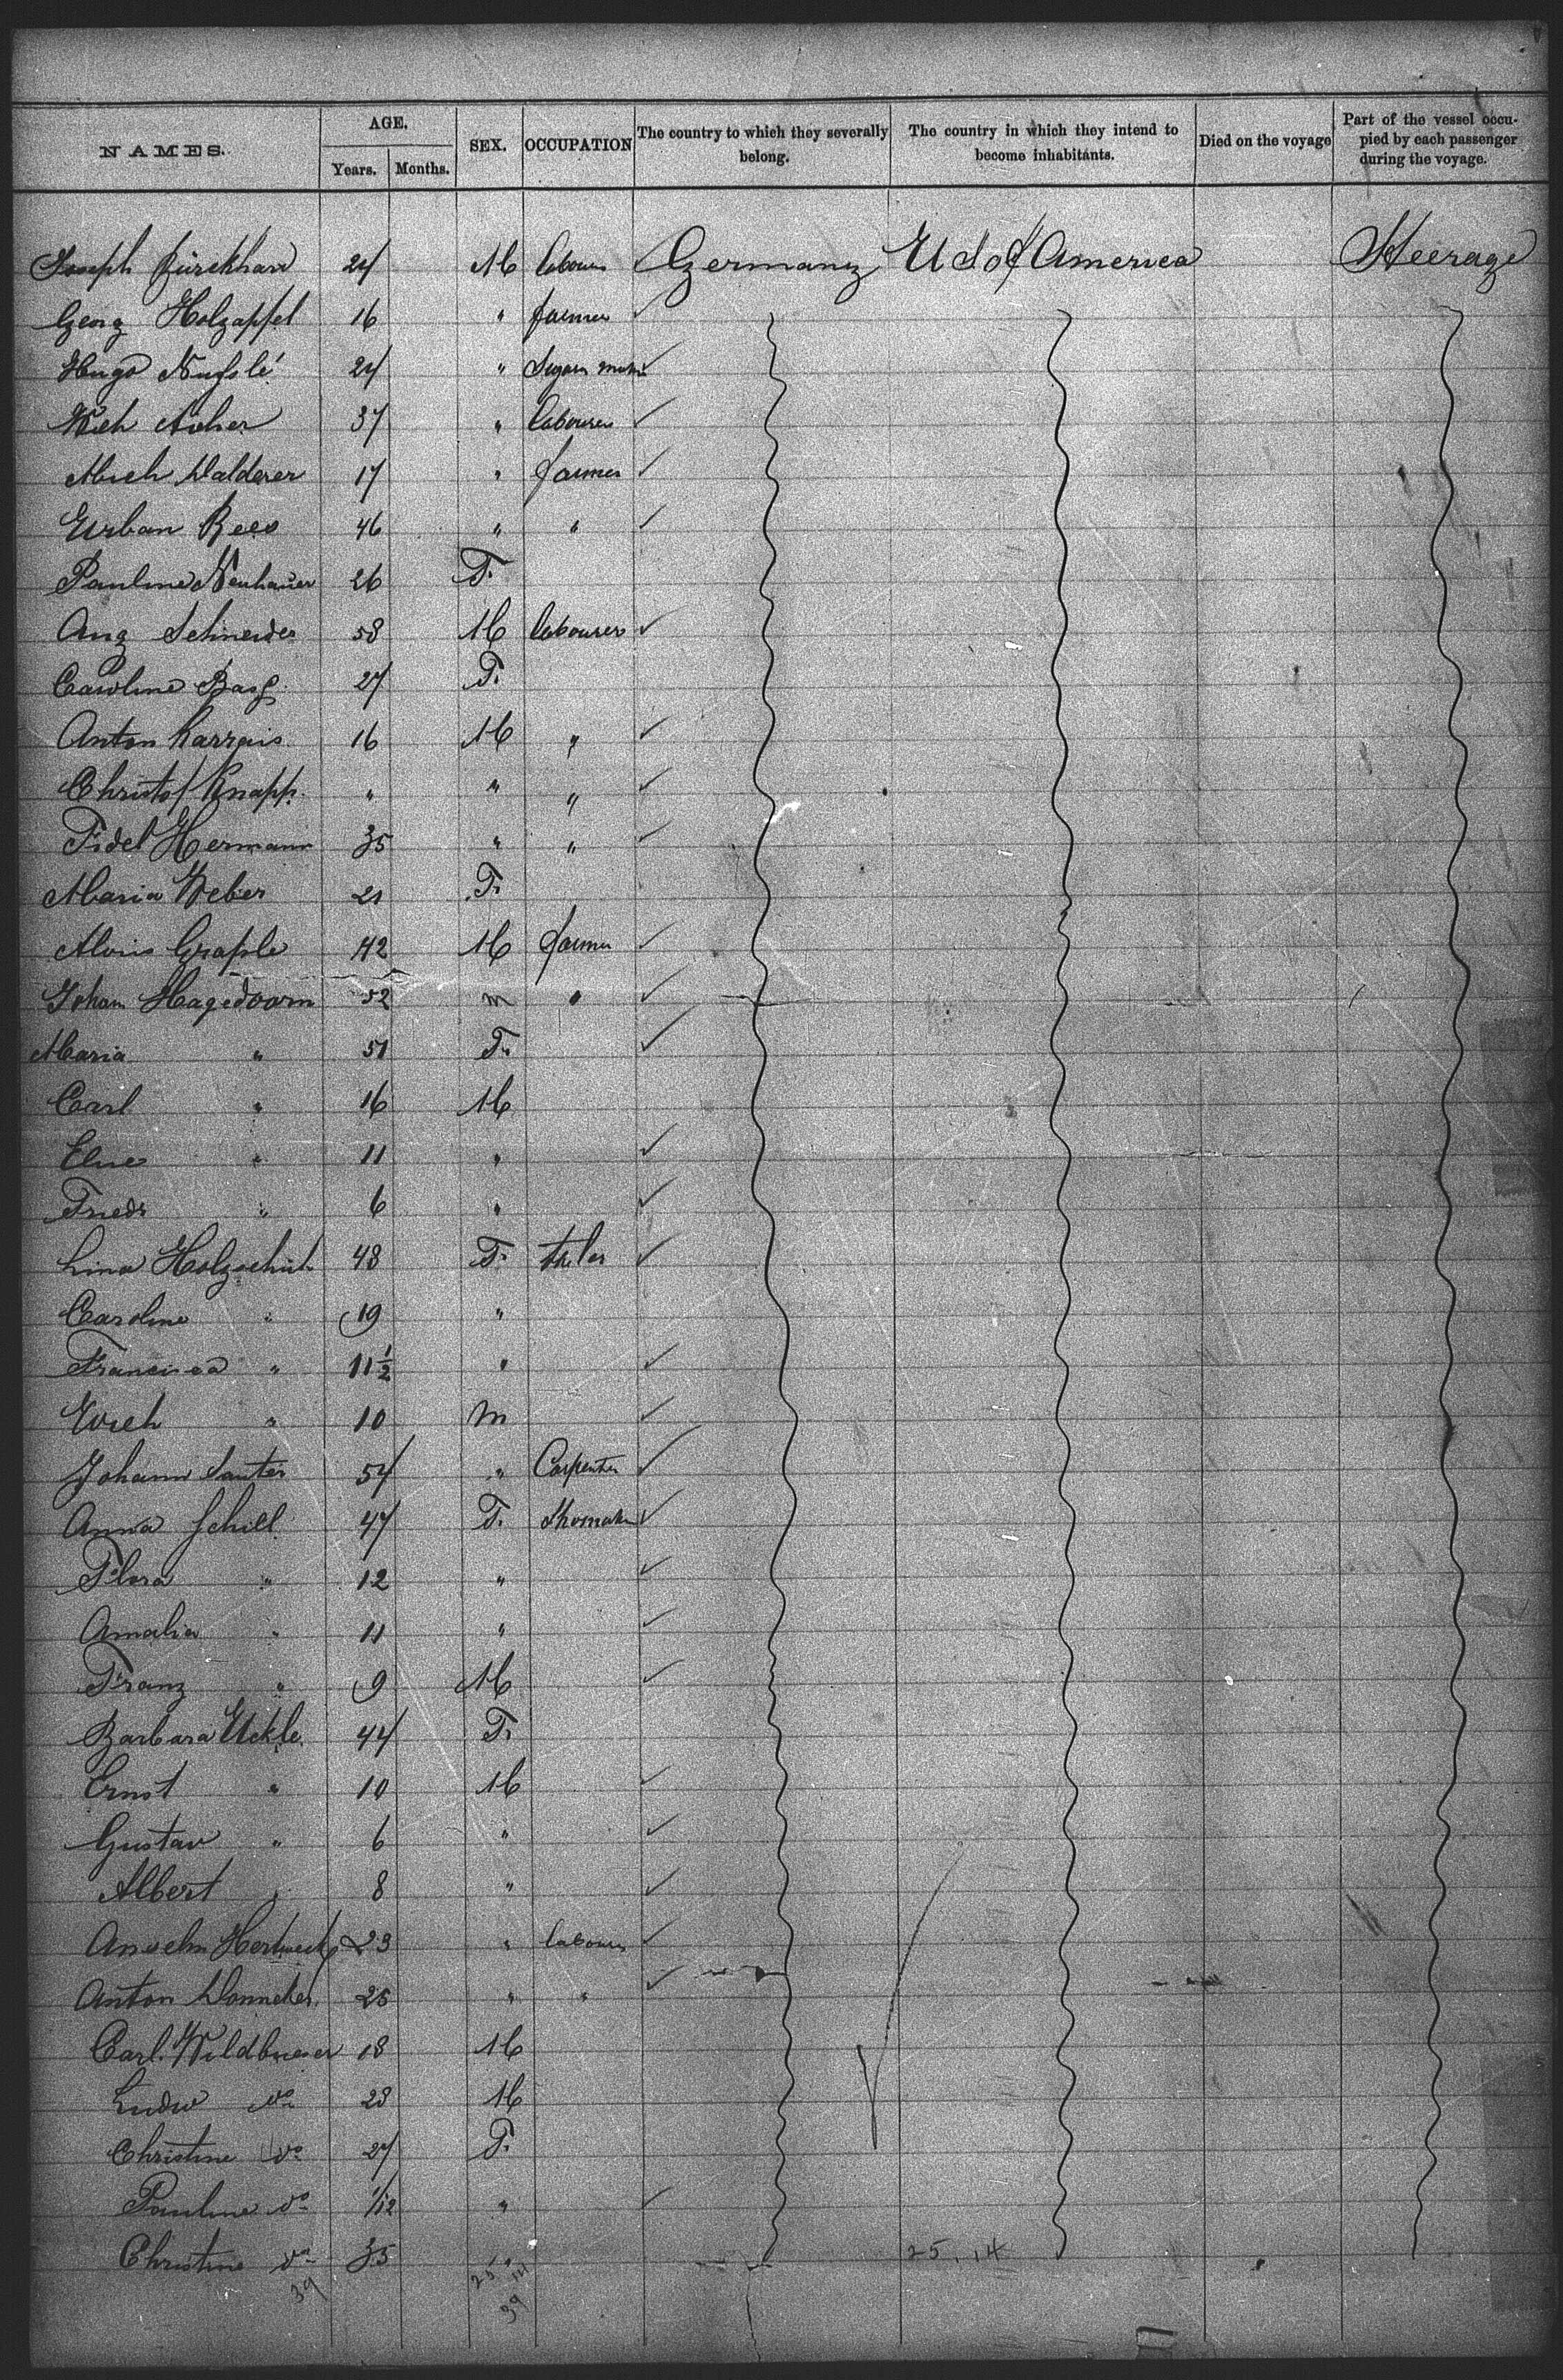 NAMES. AGE. SEX. OCCUPATION The country to which they severally belong. The country in which they intend to become inhabitants. Died on the voyage Part of the vessel occupied by each passenger during the voyage.
Years. Months.
Joseph Bürckhard 24 M labourer Germany U S of America Steerage
Georg Holzapfel 16 " farmer
Hugo Nußlé 24 " Segarr
37 " labourer
Mich Walderer 17 " farmer
Urban Rees 46 " "
Pauline Neuhauser 26 F.
Aug Schneider 58 M labourer
Caroline 27 F.
Anton Karrais 16 M "
Christof Knapp. " " "
Fidel Hermann 35 " "
Maria Weber 21 F.
Alois 42 M farmer
Johan Hagedoorn 52 m "
Maria " 51 F.
Carl " 16 M
Elise " 11 "
Friedr " 6 "
Lina Holzschuh 48 F.
Caroline " 19 "
Francisca " 11 1/2 "
" 10 m
Johann Sauter 54 " Carpenter
Anna Schill 47 F. Shomaker
Flora " 12 "
Amalia " 11 "
Franz " 9 M
Barbara Uckle. 44 F.
Ernst " 10 M
Gustav " 6 "
Albert " 8 "
Anselm Hertweck 23 " labourer
Anton Donnecker 25 " "
Carl 18 M
Ludw do 28 M
Christine do 27 F.
Pauline do 1/12 "
Christine do 35 " 25.14
39 25.14
39